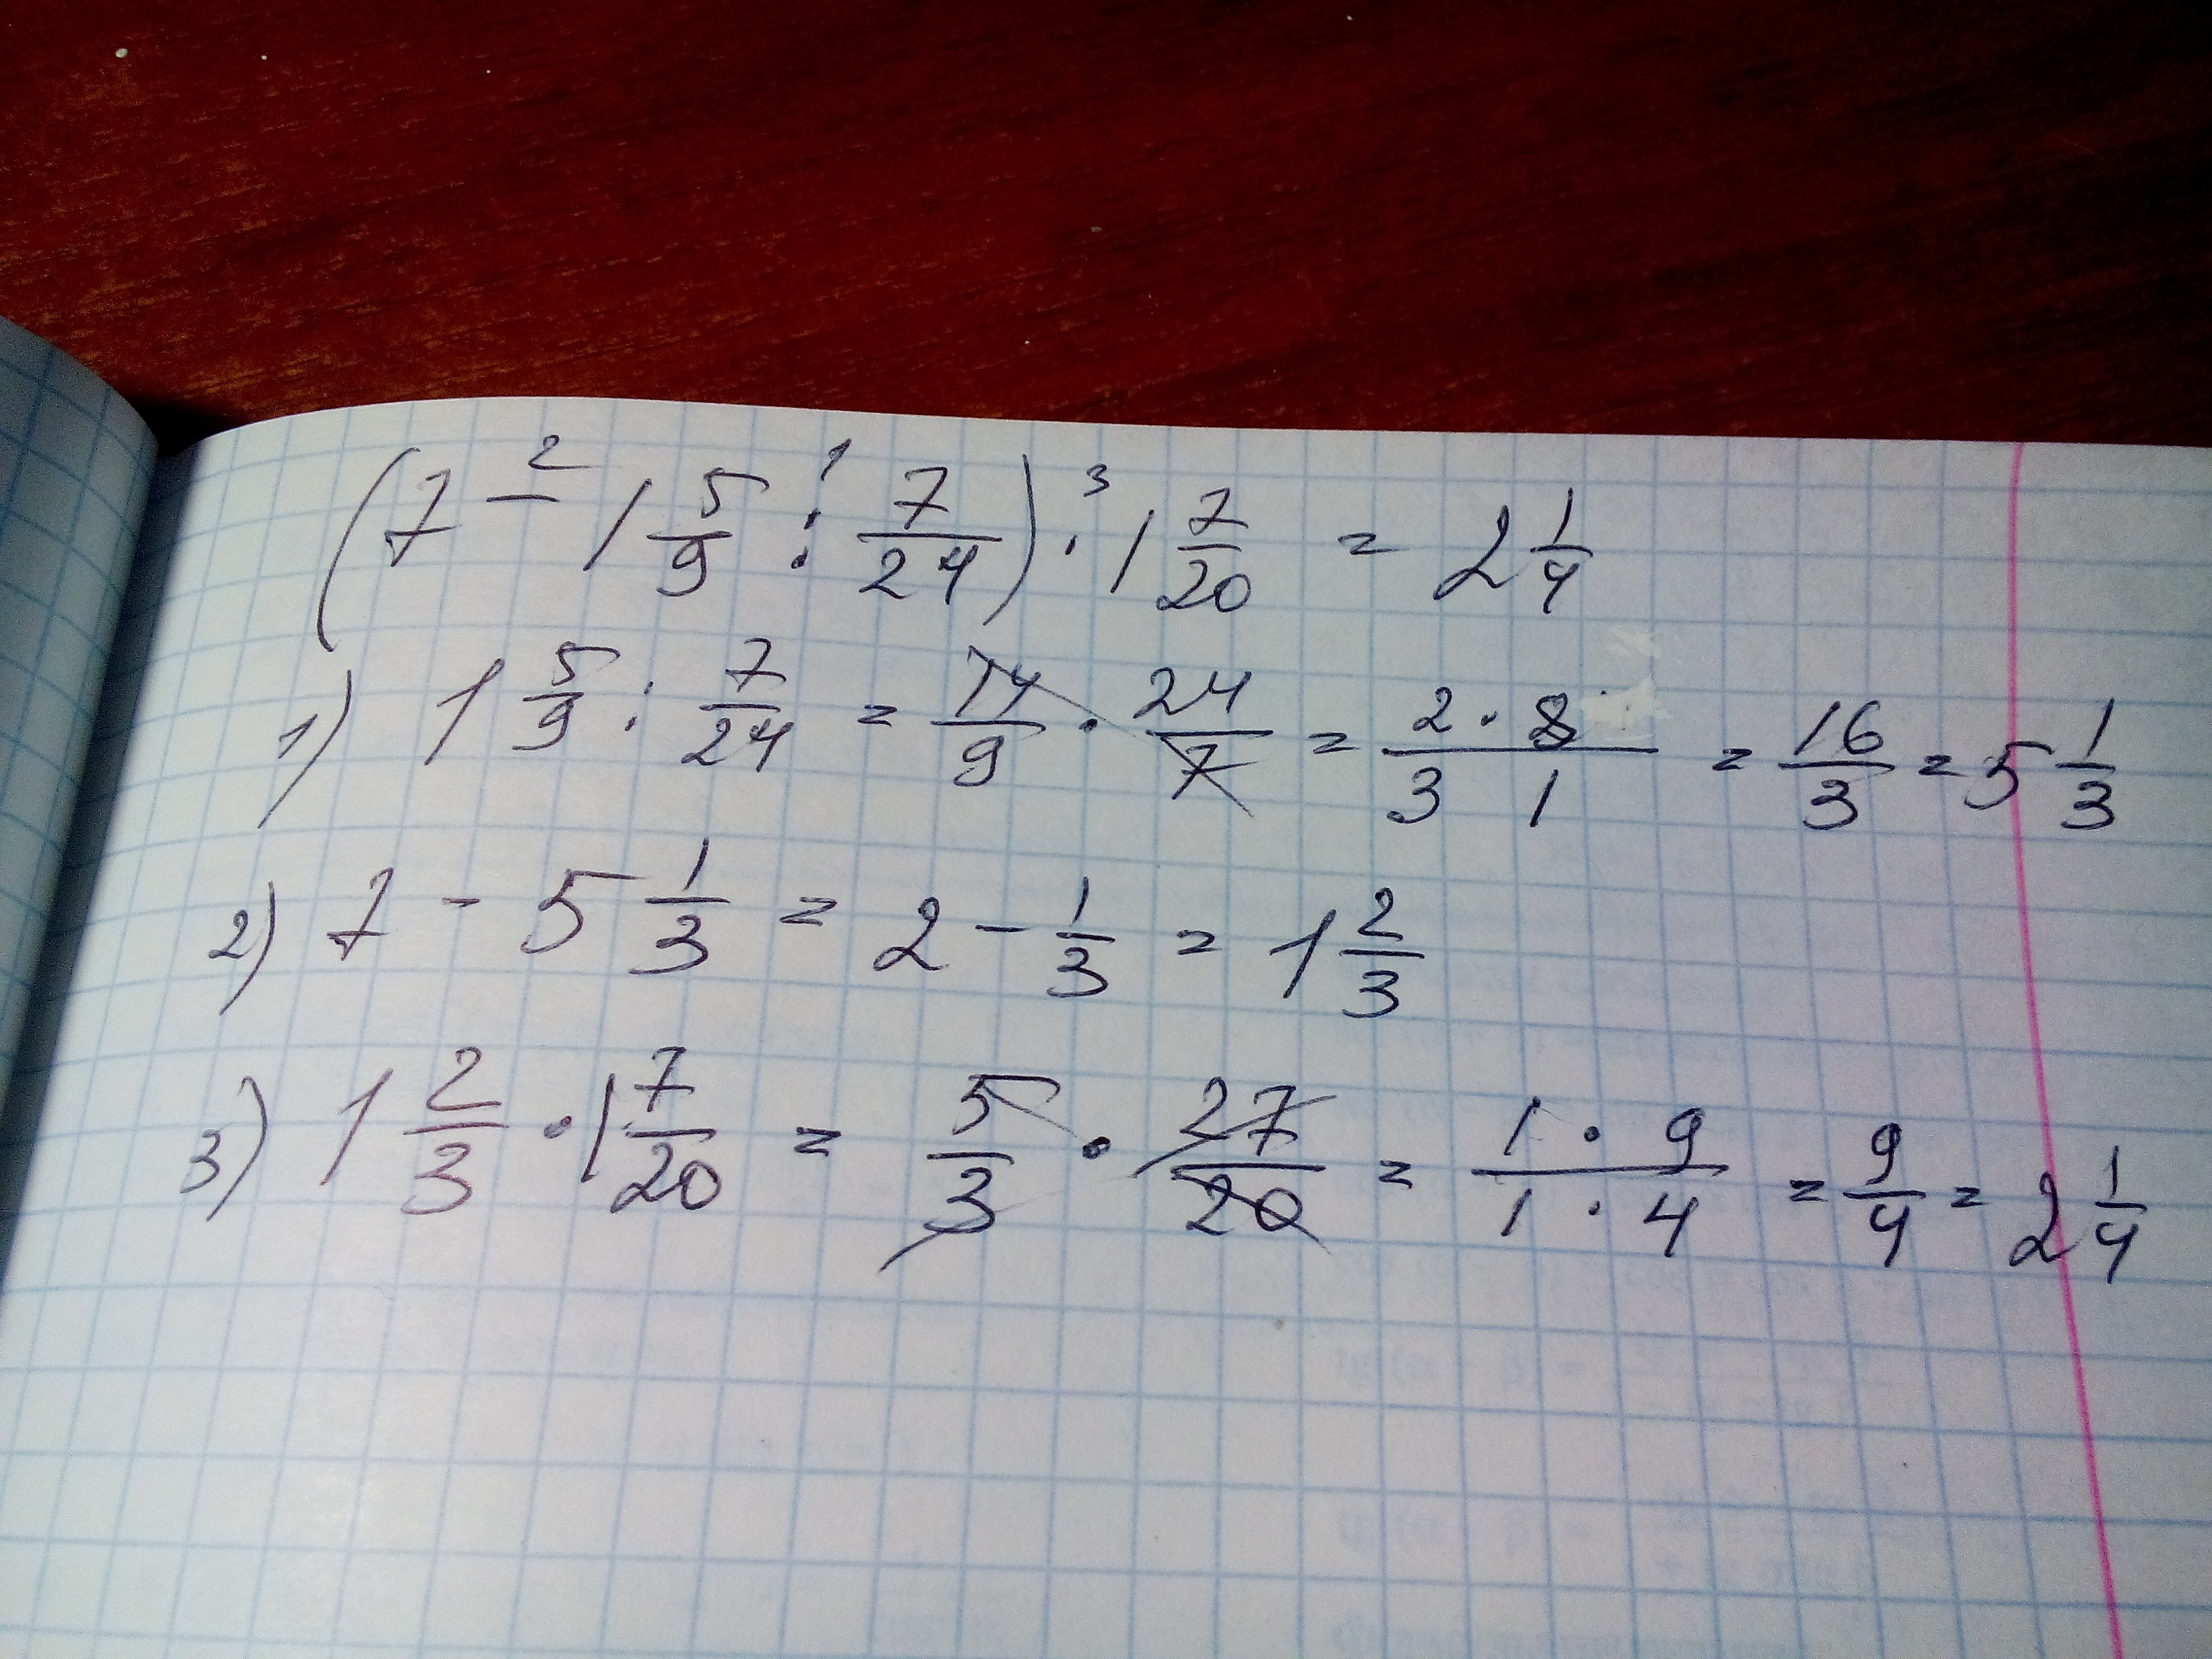 (7 - 1 5/9 : 7/24) · 1 7/20 = 2 1/4
1) 1 5/9 : 7/24 = 14/9 · 24/7 = 2 · 8 / 3 1 = 16/3 = 5 1/3
2) 7 - 5 1/3 = 2 - 1/3 = 1 2/3
3) 1 2/3 · 1 7/20 = 5/3 · 27/20 = 1 · 9 / 1 · 4 = 9/4 = 2 1/4